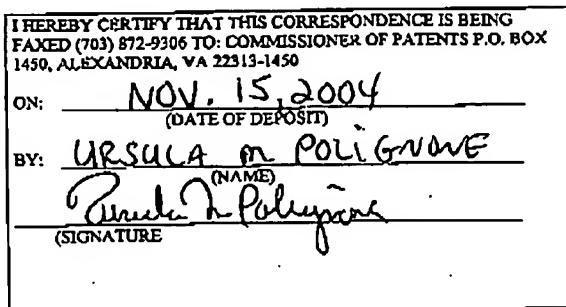 I HEREBY CERTIFY THAT THIS CORRESPONDENCE IS BEING
FAXED (703) 872-9306 TO: COMMISSIONER OF PATENTS P.O. BOX
1450, ALEXANDRIA, VA 22313-1450
ON: NOV. 15, 2004
(DATE OF DEPOSIT)
BY: URSULA M POLIGNONE
(NAME)
Ursula M Polignone
(SIGNATURE